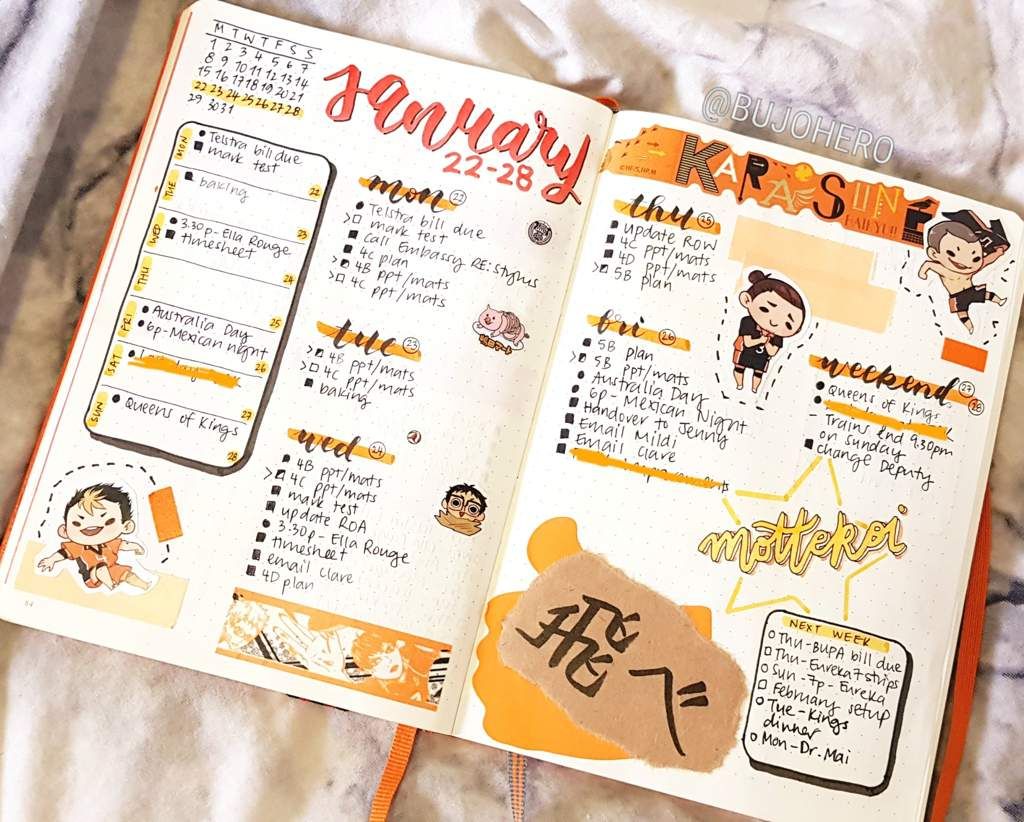 M T W T F S S
1 2 3 4 5 6 7
8 9 10 11 12 13 14
15 16 17 18 19 20 21
22 23 24 25 26 27 28
29 30 31
January
22-28
MON
Telstra bill due
mark test
22
TUE
baking
23
WED
3.30p - Ella Rouge
timesheet
24
THU
25
FRI
Australia Day
6p - Mexican night
26
SAT
27
SUN
Queens of Kings
28
mon 22
Telstra bill due
mark test
call Embassy RE: stylus
4C plan
4B ppt/mats
4C ppt/mats
tue 23
4B ppt/mats
4C ppt/mats
baking
wed 24
4B ppt/mats
4C ppt/mats
mark test
update ROA
3:30p - Ella Rouge
timesheet
email clare
4D plan
@BUJOHERO
KARASUNO
HAIKYU!!
thu 25
update ROW
4C ppt/mats
4D ppt/mats
5B plan
fri 26
5B plan
5B ppt/mats
Australia Day
6p - Mexican Night
Handover to Jenny
Email Mildi
Email clare
weekend 27 28
Queens of Kings
Trains end 9:30pm
on Sunday
change Deputy
mottekoi
飛べ
NEXT WEEK
Thu - BUPA bill due
Thu - Eureka 7 strips
Sun - 7p - Eureka
February setup
Tue - Kings
dinner
Mon - Dr. Mai